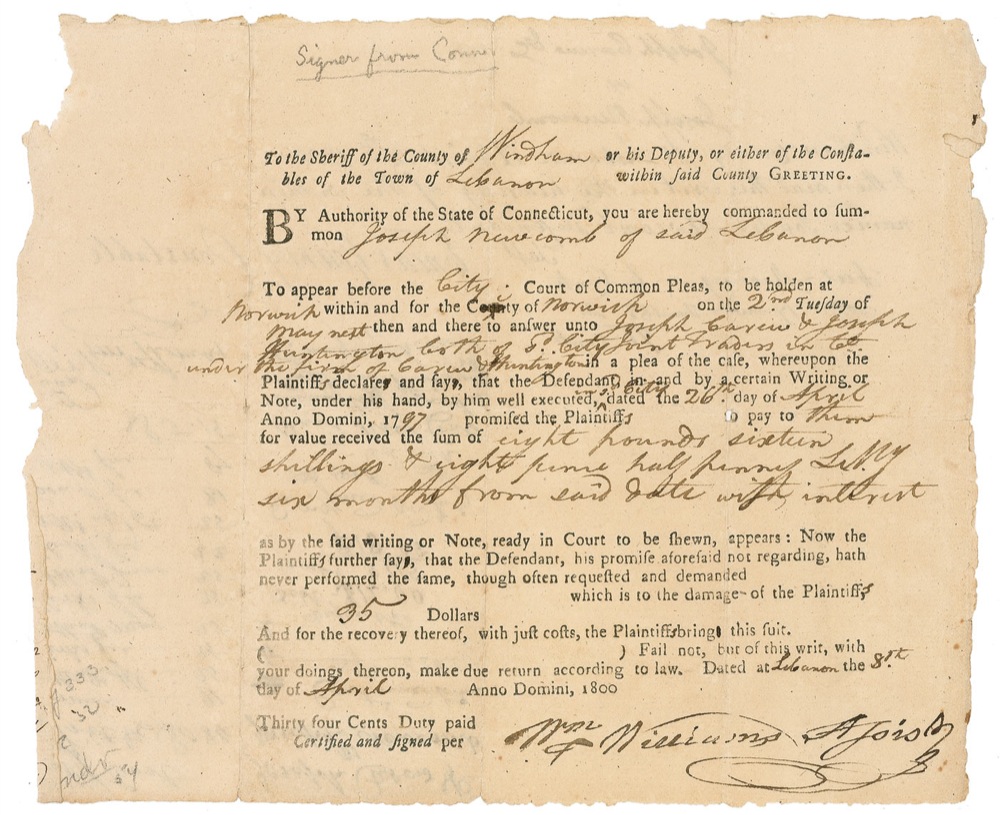 Signer from Conne
To the Sheriff of the County of Windham or his Deputy, or either of the Consta-
bles of the Town of Lebanon within said County GREETING.
BY Authority of the State of Connecticut, you are hereby commanded to sum-
mon Joseph Newcomb of said Lebanon
To appear before the City Court of Common Pleas, to be holden at
Norwich within and for the County of Norwich on the 2nd Tuesday of
May next then and there to answer unto Joseph Carew & Joseph
Huntington both of Sd. City Joint Traders in Co
under the firm of Carew & Huntington in a plea of the case, whereupon the
Plaintiffs declare and say, that the Defendant, in and by a certain Writing or
Note, under his hand, by him well executed, sd City dated the 26th day of April
Anno Domini, 1797 promised the Plaintiffs to pay to them
for value received the sum of eight pounds sixteen
shillings & eight pence half penny L My
six months from said date with interest
as by the said writing or Note, ready in Court to be shewn, appears: Now the
Plaintiffs further say, that the Defendant, his promise aforesaid not regarding, hath
never performed the same, though often requested and demanded
which is to the damage of the Plaintiffs
35 Dollars
And for the recovery thereof, with just costs, the Plaintiffs bring this suit.
( ) Fail not, but of this writ, with
your doings thereon, make due return according to law. Dated at Lebanon the 8th
day of April Anno Domini, 1800
Thirty four Cents Duty paid
Certified and signed per Wm Williams Assist
333
32
54